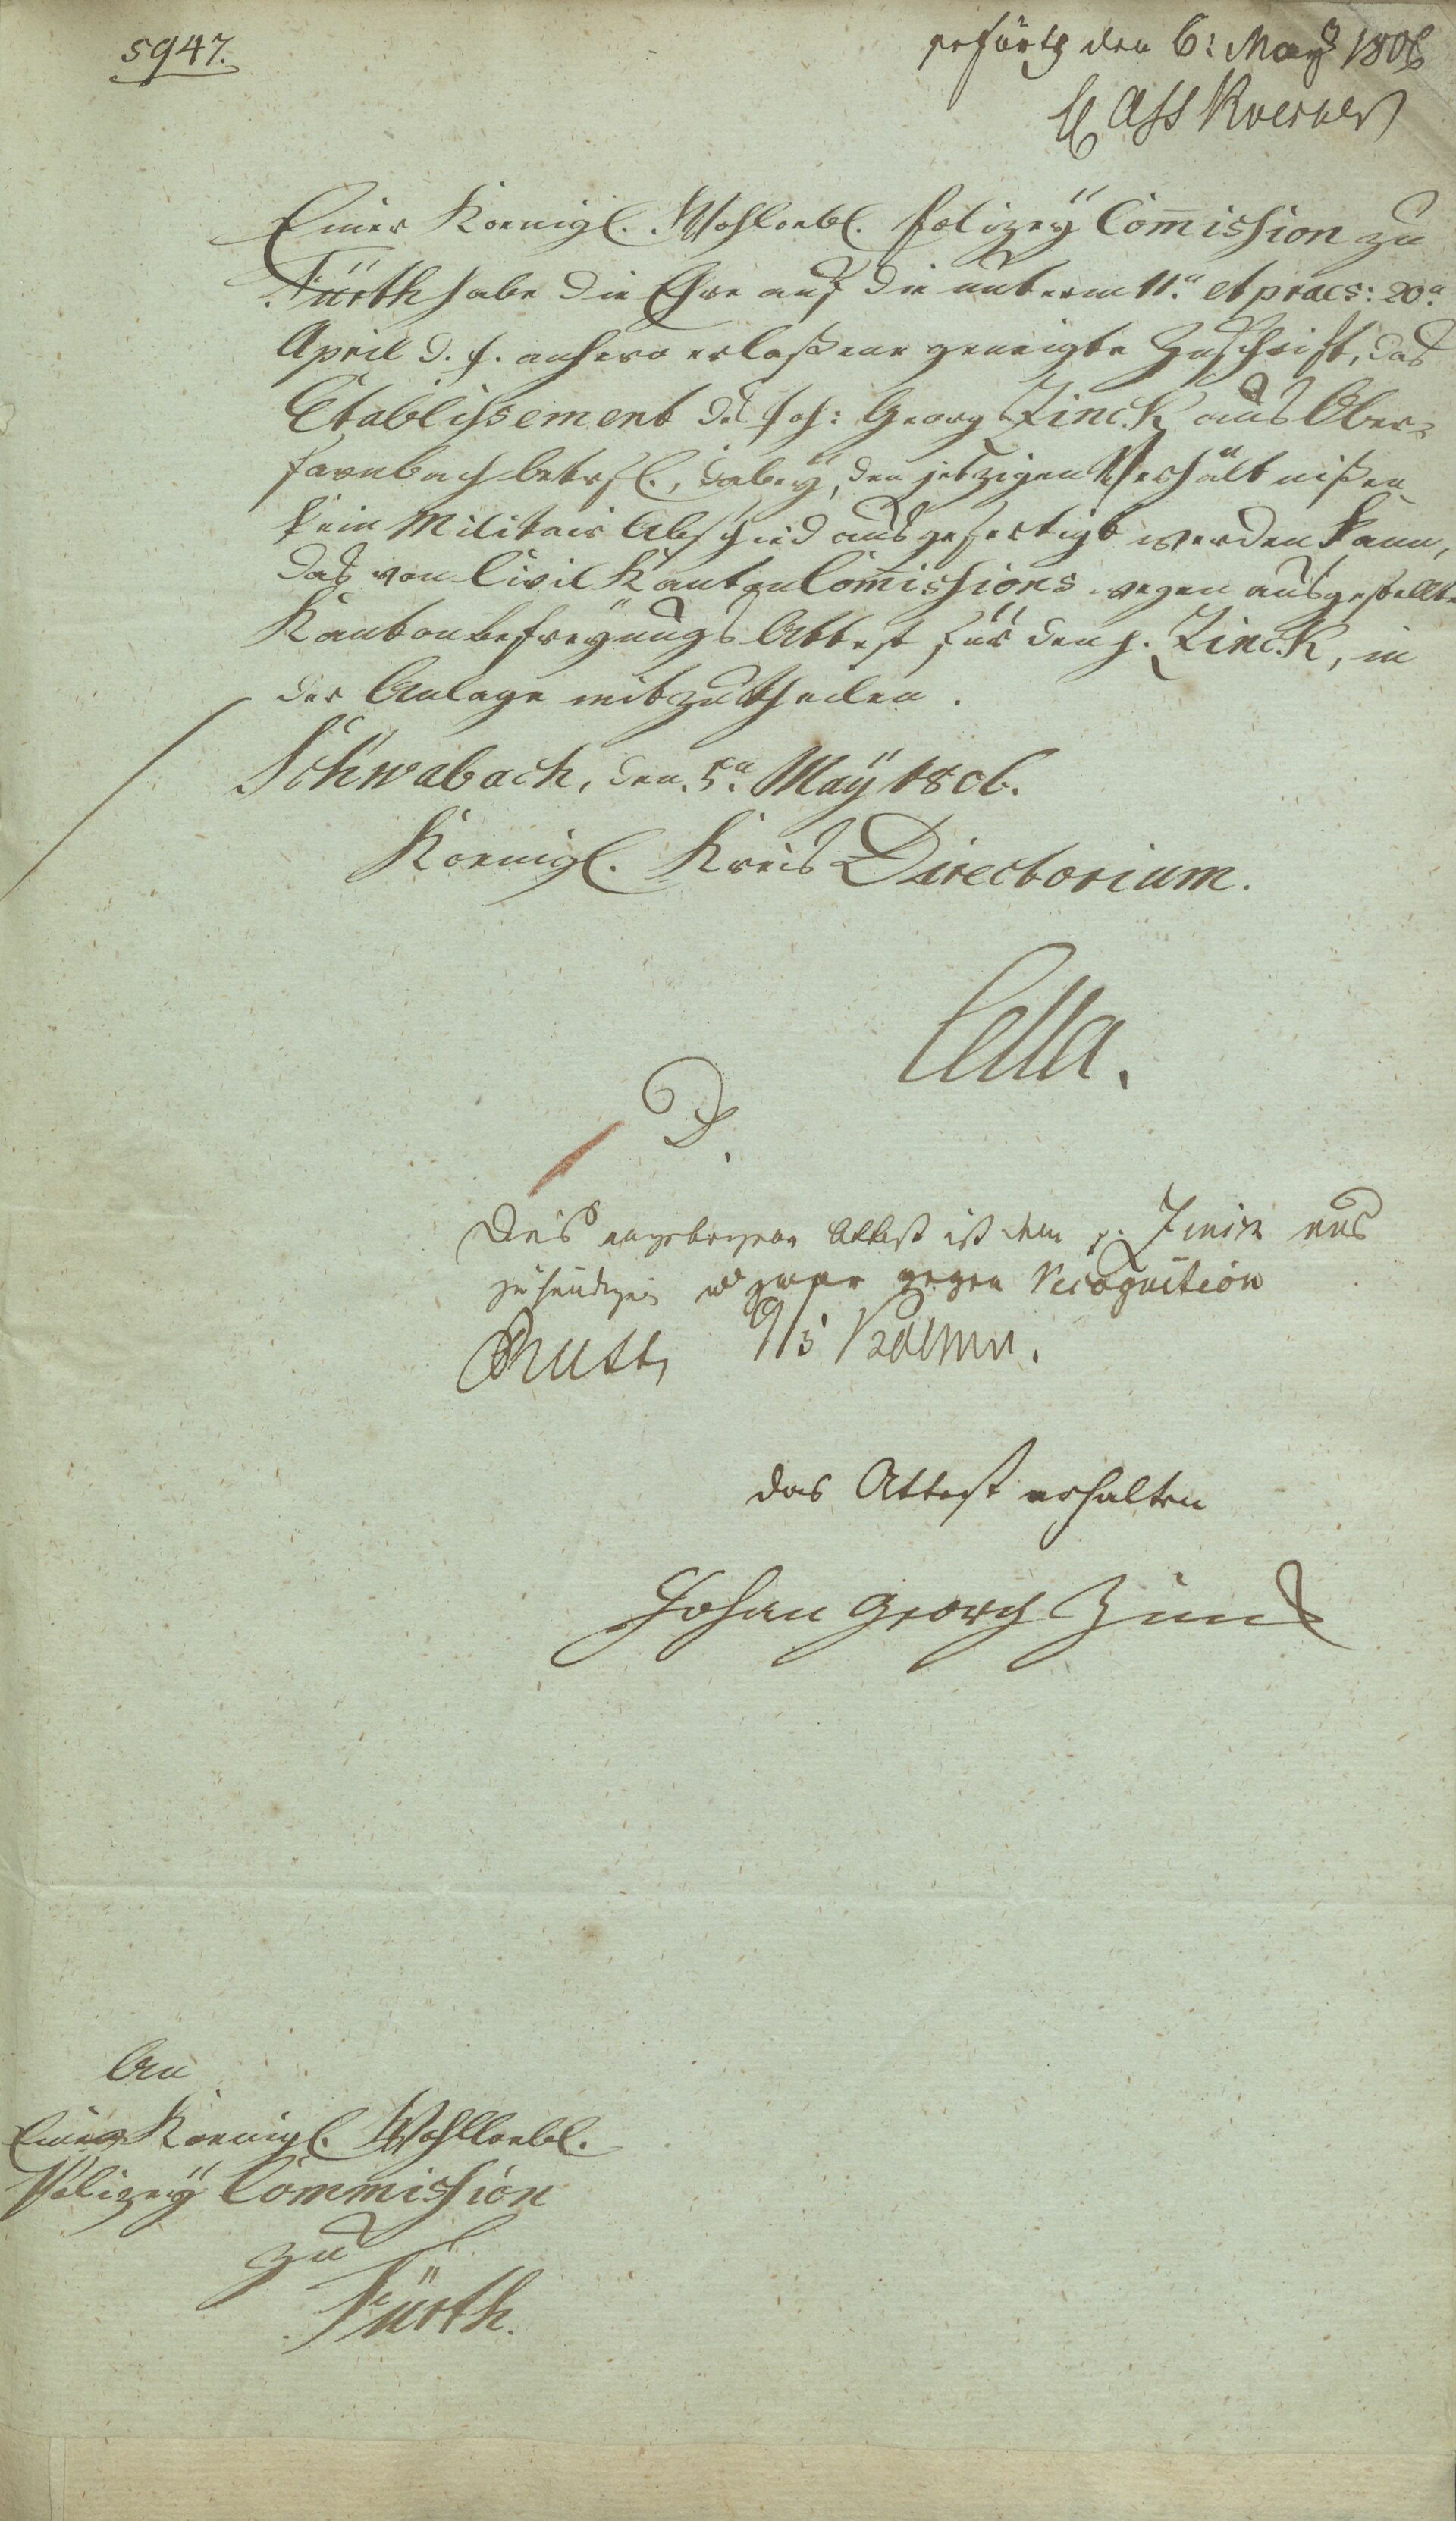 5947.
pr Fürth den 6t May 1806
C Ass Kuerner
Einer Koenigl. Wohlloebl. Polizeÿ Com̄ission zu
Fürth habe die Ehre auf die unterm 11n et praes: 20n
April d. J. anhero erlaßene geneigte Zuschrift, das
Etablissement des Joh: Georg Zinck aus Ober-
farnbach betrfl., da beÿ, den jetzigen Verhältnißen
kein Militair Abschied ausgefertigt werden kann,
das von Civil Kanton Com̄issions wegen ausgestellte
Kantonbefreÿungs Attest für den p. Zinck, in
der Anlage mitzutheilen.
Schwabach, den 5n Maÿ 1806.
Koenigl. Kreis Directorium.
Cella.
D.
Das angebogene Attest ist dem p. Zinck aus
zuhändigen u zwar gegen Recognition
9/5
das Attest erhalten
Johan Georg Zinck
An
Eine Koenigl. Wohlloebl.
Polizeÿ Commission
zu
Fürth.